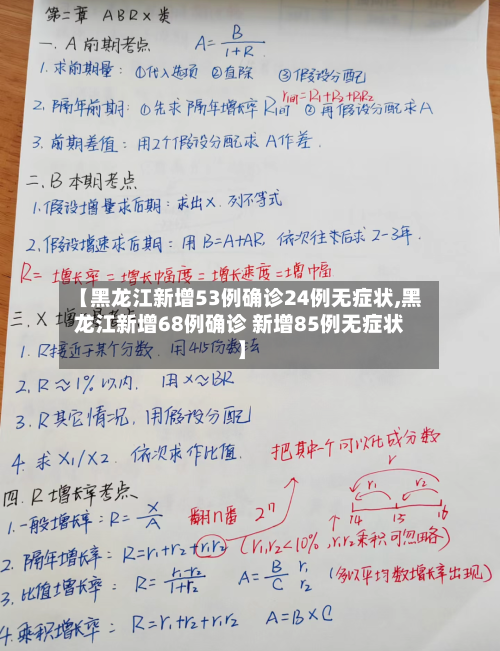 第二章 ABRX类
一. A 前期考点 A= B/(1+R)
1. 求前期量: ①代入选项 ②直除 ③假设分配
r间=R1+R2+R1R2
2. 隔年前期: ①先求隔年增长率R间 ②再假设分配求A
3. 前期差值: 用2个假设分配求A作差.
二. B 本期考点
1. 假设增量求后期: 求出X. 列不等式
2. 假设增速求后期: 用B=A+AR, 依次往来后求2-3年.
R= 增长率=增长幅度=增长速度=增幅
【黑龙江新增53例确诊24例无症状,黑
龙江新增68例确诊 新增85例无症状
】
三. X 增
1. R接近于某个分数. 用415份数法
2. R≈1%以内. 用X≈BR
3. R其它情况, 用假设分配
4. 求X1/X2. 依次求作比值.
把其中一个可以化成分数
四. R 增长率考点
r
r1 r2
14 15 16
1. 一般增长率: R= X/A
翻n番 2ⁿ
2. 隔年增长率: R=r1+r2+r1r2 (r1,r2<10%, r1r2乘积可忽略)
3. 比值增长率: R= (r1-r2)/(1+r2) A= B/C r1 r2 (多以平均数增长率出现)
4. 乘积增长率: R=r1+r2+r1r2 A=B×C